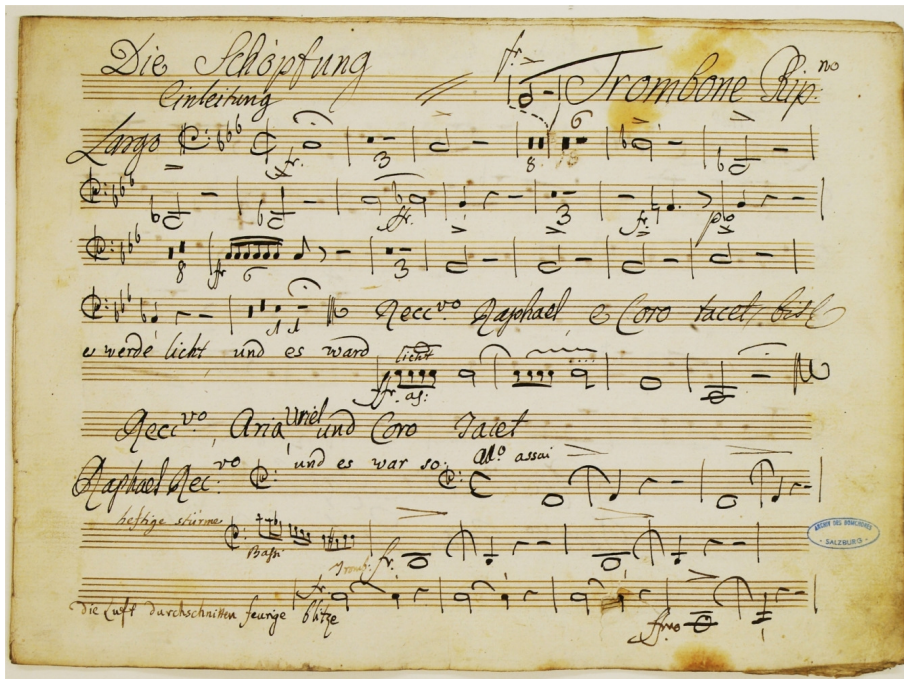 Die Schöpfung
Einleitung
fr. Trombone Rip.no
Largo fr. 3 8 6
ffr. 3 fr. p
8 fr 6 3
1 1 Recc.vo Raphael, e Coro tacet, bis
es werde licht und es ward licht
ffr. as:
Recc.vo, Aria Uriel und Coro Tacet
Raphael Rec.vo und es war so. ad.o assai
heftige stürme Bassi fr.
die Luft durchschnitten feurige blitze fr. ffmo
ARCHIV DES DOMCHORES
- SALZBURG -